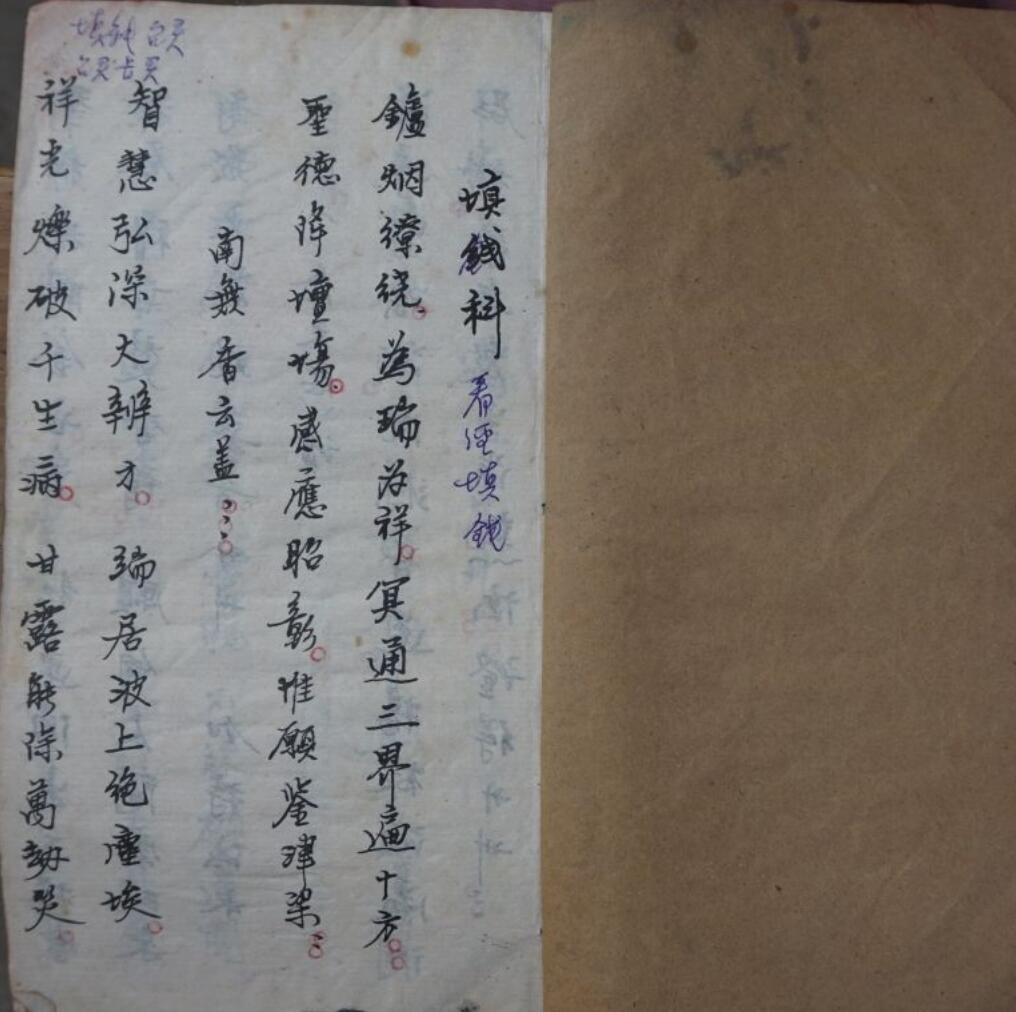 填錢科 看经填钱
鑪烟繚绕為瑞为祥冥通三界遍十方
聖德降壇場感應昭彰惟願鉴津梁
南無香云盖
智慧弘深大辨才端居波上绝塵埃
祥光爍破千生病甘露能除萬劫灾
填钱